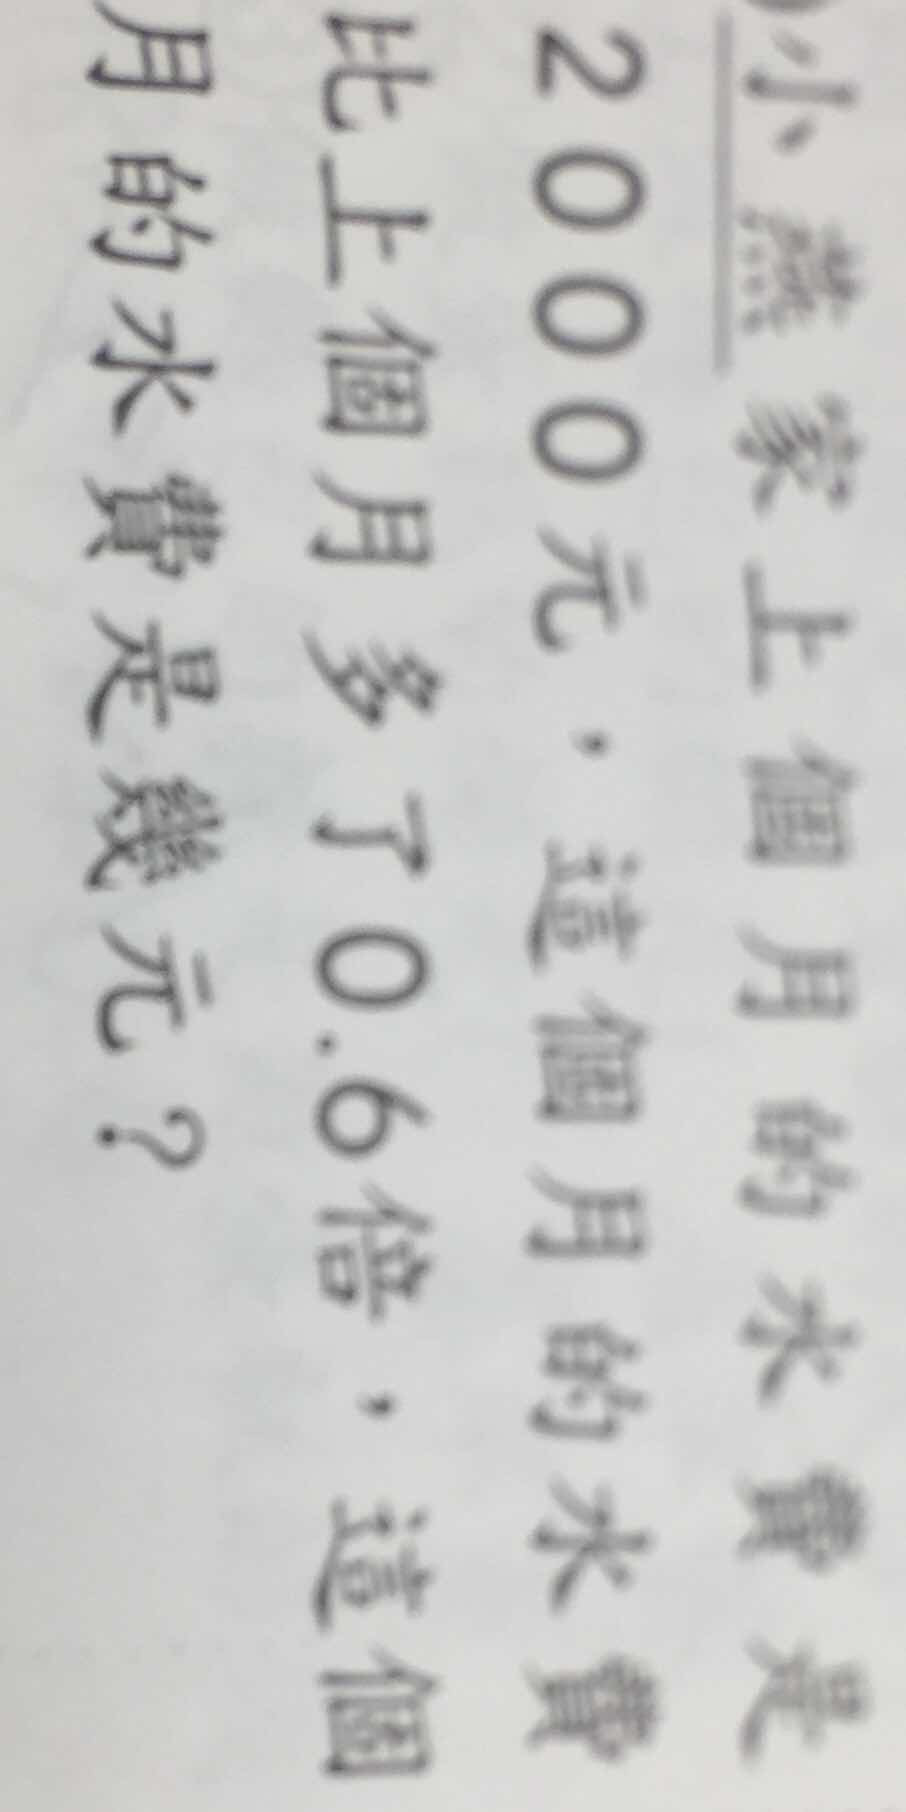 小燕家上個月的水費是
2000元，這個月的水費
比上個月多了0.6倍，這個
月的水費是幾元？